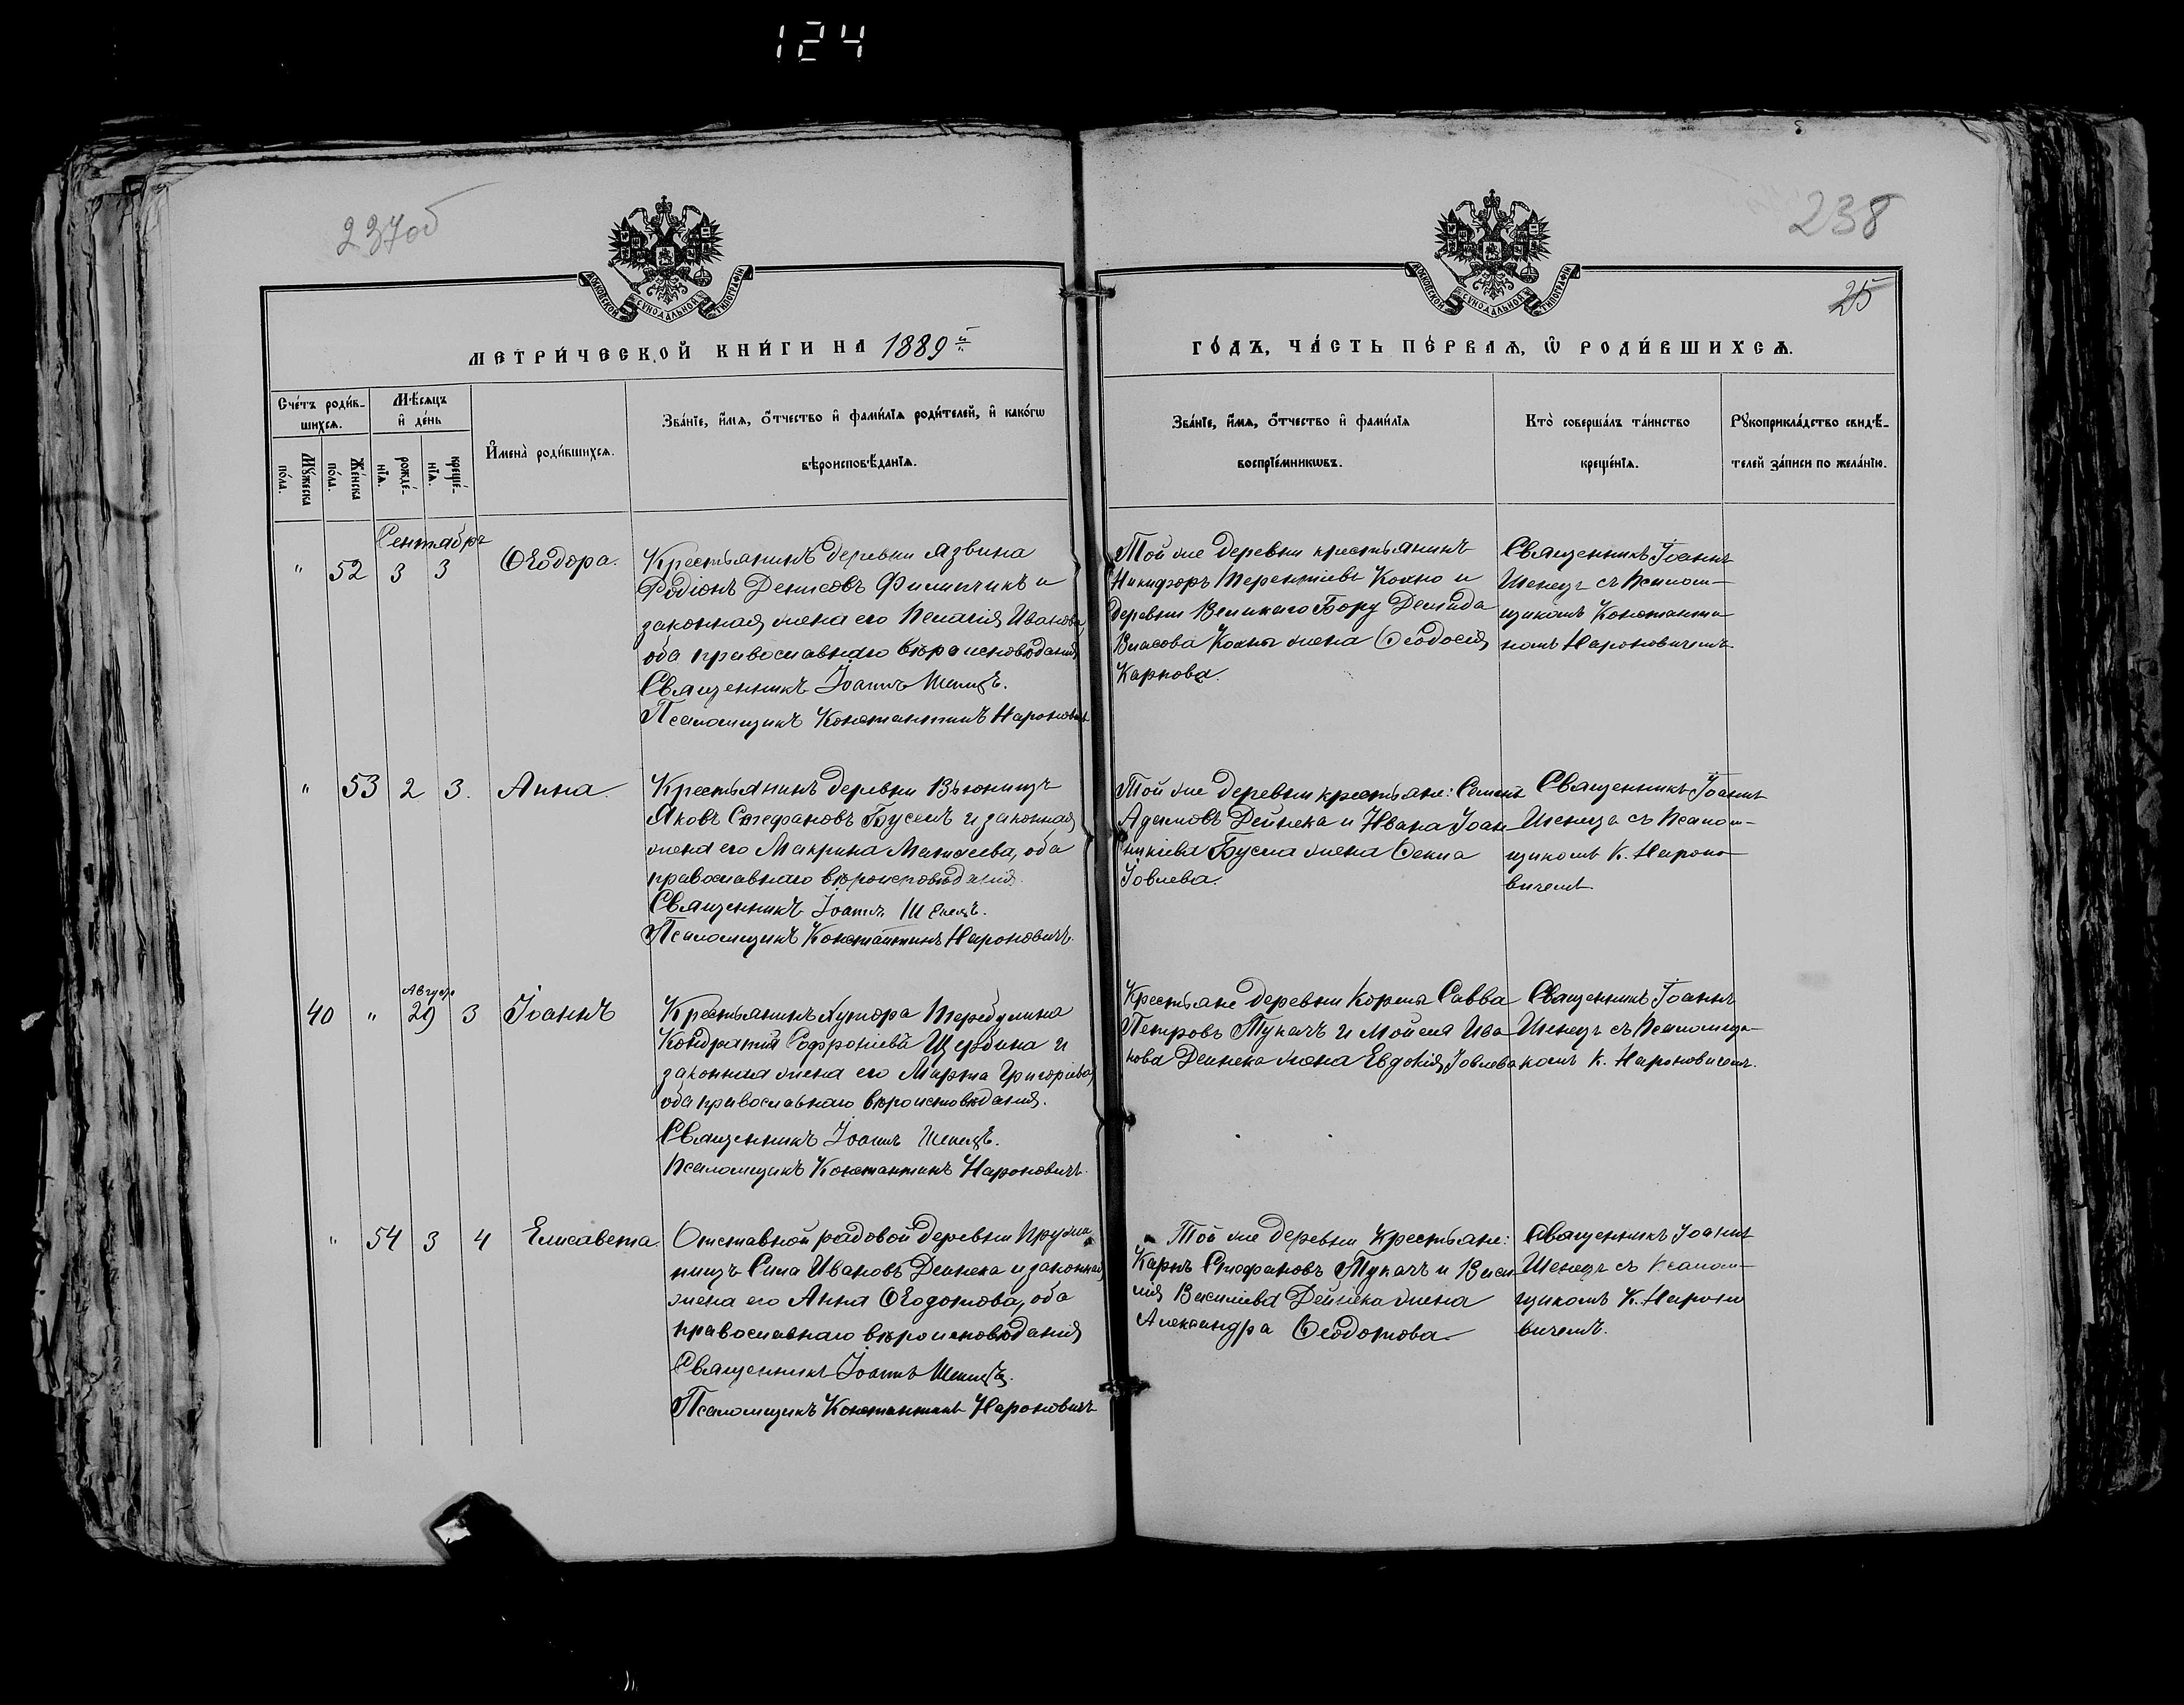 124
237об
238
25
МОСКОВСКОЙ СѴНОДАЛЬНОЙ ТИПОГРАФІИ
МОСКОВСКОЙ СѴНОДАЛЬНОЙ ТИПОГРАФІИ
МЕТРИ́ЧЕСКОЙ КНИ́ГИ НА 1889й
ГО́ДЪ, ЧА́СТЬ ПЕ́РВАѦ, Ѿ РОДИ́ВШИХСѦ.
Сче́тъ роди́в-
шихсѧ.
Мѣ́сѧцъ
и҆ де́нь
Му́жеска
по́ла.
Же́нска
по́ла.
рожде́-
нїѧ.
креще́-
нїѧ.
И҆мена̀ роди́вшихсѧ.
Зва́нїе, и҆́мѧ, ѻ҆́тчество и҆ фами́лїѧ роди́телей, и҆ како́гѡ
вѣроисповѣ́данїѧ.
Зва́нїе, и҆́мѧ, ѻ҆́тчество и҆ фами́лїѧ
воспрїе́мникѡвъ.
Кто̀ соверша́лъ та́инство
креще́нїѧ.
Рꙋкоприкла́дство свидѣ́-
телей за́писи по жела́нїю.
Сентябрь
" 52 3 3 Ѳеодора.
Крестьянинъ деревни Язвина
Родіонъ Денисовъ Филипчикъ и
законная жена его Пелагія Иванова,
оба православнаго вѣроисповѣданія
Священникъ Іоаннъ Шенецъ.
Псаломщикъ Константинъ Нароновичъ
Той же деревни крестьянинъ
Никифоръ Терентіевъ Кохно и
деревни Великаго Бору Демида
Власова Кохны жена Ѳеодосія
Карпова.
Священникъ Іоаннъ
Шенецъ съ Псалом-
щикомъ Константи
номъ Нароновичемъ
" 53 2 3. Анна.
Крестьянинъ деревни Вьюнищъ
Яковъ Стефановъ Буселъ и законная
жена его Макрина Матѳеева, оба
православнаго вѣроисповѣданія.
Священникъ Іоаннъ Шенецъ.
Псаломщикъ Константинъ Нароновичъ.
Той же деревни крестьяне: Семенъ
Адамовъ Дейнека и Ивана Іоан
никіева Бусла жена Ѳекла
Іовлева.
Священникъ Іоаннъ
Шенецъ съ Псалом-
щикомъ К. Нароно
вичемъ.
Август
40 " 29 3 Іоаннъ
Крестьянинъ хутора Теребулина
Кондратій Софроніевъ Щербина и
законная жена его Марта Григоріева,
оба православнаго вѣроисповѣданія.
Священникъ Іоаннъ Шенецъ.
Псаломщикъ Константинъ Нароновичъ.
Крестьяне деревни Корма Савва
Петровъ Тукачъ и Моисея Ива
нова Дейнека жена Евдокія Іовлева
Священникъ Іоаннъ
Шенецъ съ Псаломщи-
комъ К. Нароновичемъ.
" 54 3 4 Елисавета.
Отставной рядовой деревни
Сила Ивановъ Дейнека и законная
жена его Анна Ѳеодотова, оба
православнаго вѣроисповѣданія
Священникъ Іоаннъ Шенецъ.
Псаломщикъ Константинъ Нароновичъ
Той же деревни Крестьяне:
Карпъ Стефановъ Тукачъ и Васи
лія Василіева Дейнека жена
Александра Ѳеодотова.
Священникъ Іоаннъ
Шенецъ съ Псалом-
щикомъ К. Нароно
вичемъ.